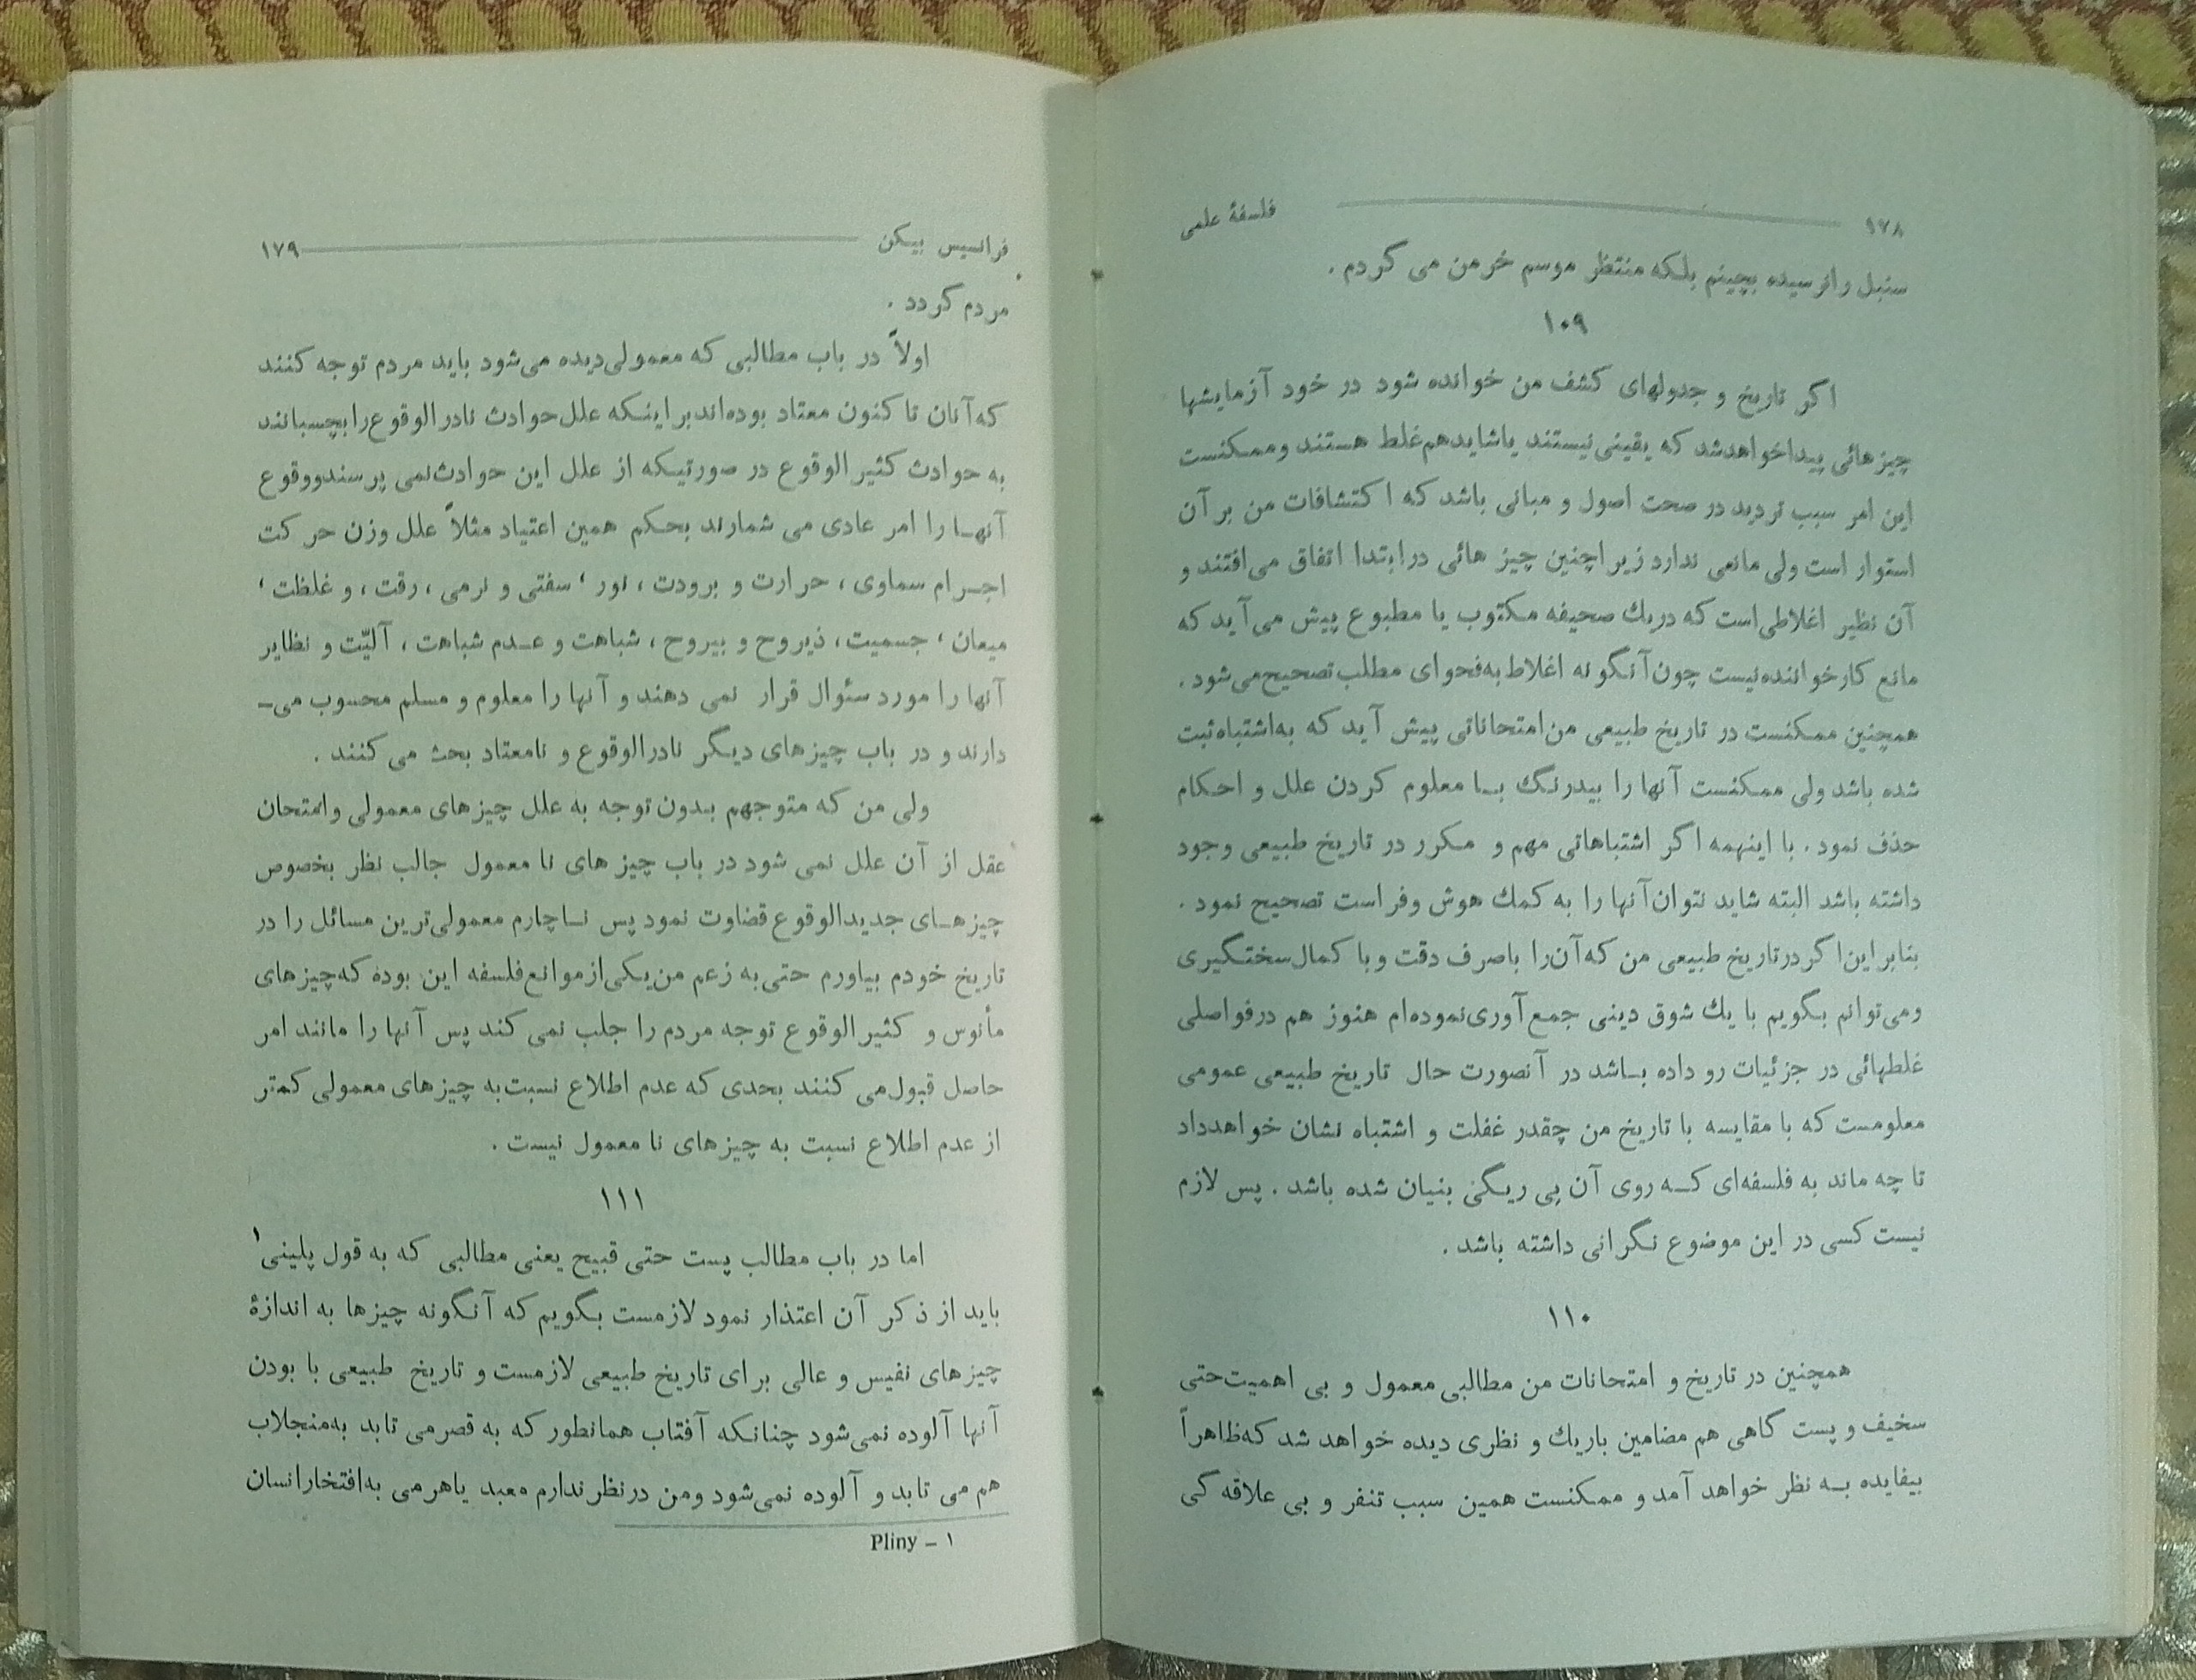 ۱۷۸ فلسفهٔ علمی
سنبل را نرسیده بچینم بلکه منتظر موسم خرمن می گردم .
۱۰۹
اگر تاریخ و جدولهای کشف من خوانده شود در خود آزمایشها
چیزهائی پیداخواهدشد که یقینی نیستند یاشایدهم غلط هستند وممکنست
این امر سبب تردید در صحت اصول و مبانی باشد که اکتشافات من بر آن
استوار است ولی مانعی ندارد زیرا چنین چیز هائی درابتدا اتفاق می‌افتند و
آن نظیر اغلاطی‌است که دریك صحیفه مکتوب یا مطبوع پیش می‌آید که
مانع کارخواننده‌نیست چون‌آنگونه اغلاط به‌فحوای مطلب تصحیح‌می‌شود .
همچنین ممکنست در تاریخ طبیعی من‌امتحاناتی پیش آید که به‌اشتباه‌ثبت
شده باشد ولی ممکنست آنها را بیدرنگ با معلوم کردن علل و احکام
حذف نمود . با اینهمه اگر اشتباهاتی مهم و مکرر در تاریخ طبیعی وجود
داشته باشد البته شاید نتوان‌آنها را به کمك هوش وفراست تصحیح نمود .
بنابراین‌اگردرتاریخ طبیعی من که‌آن‌را باصرف دقت وبا کمال‌سختگیری
ومی‌توانم بگویم با یك شوق دینی جمع‌آوری‌نموده‌ام هنوز هم درفواصلی
غلطهائی در جزئیات رو داده باشد در آنصورت حال تاریخ طبیعی عمومی
معلومست که با مقایسه با تاریخ من چقدر غفلت و اشتباه نشان خواهدداد
تا چه ماند به فلسفه‌ای که روی آن بی ریگی بنیان شده باشد . پس لازم
نیست کسی در این موضوع نگرانی داشته باشد .
۱۱۰
همچنین در تاریخ و امتحانات من مطالبی معمول و بی اهمیت‌حتی
سخیف و پست گاهی هم مضامین باریك و نظری دیده خواهد شد که‌ظاهراً
بیفایده به نظر خواهد آمد و ممکنست همین سبب تنفر و بی علاقه گی
فرانسیس بیکن ۱۷۹
مردم گردد .
اولاً در باب مطالبی که معمولی‌دیده می‌شود باید مردم توجه کنند
که‌آنان تاکنون معتاد بوده‌اندبر اینکه علل‌حوادث نادرالوقوع‌رابچسبانند
به حوادث کثیرالوقوع در صورتیکه از علل این حوادث‌نمی پرسندووقوع
آنها را امر عادی می شمارند بحکم همین اعتیاد مثلاً علل وزن حرکت
اجرام سماوی ، حرارت و برودت ، نور ، سفتی و نرمی ، رقت ، و غلظت ،
میعان ، جسمیت ، ذیروح و بیروح ، شباهت و عدم شباهت ، آلیّت و نظایر
آنها را مورد سئوال قرار نمی دهند و آنها را معلوم و مسلم محسوب می-
دارند و در باب چیزهای دیگر نادرالوقوع و نامعتاد بحث می کنند .
ولی من که متوجهم بدون توجه به علل چیزهای معمولی وامتحان
عقل از آن علل نمی شود در باب چیز های نا معمول جالب نظر بخصوص
چیزهای جدیدالوقوع قضاوت نمود پس ناچارم معمولی‌ترین مسائل را در
تاریخ خودم بیاورم حتی به زعم من‌یکی‌ازموانع‌فلسفه این بوده که‌چیزهای
مأنوس و کثیرالوقوع توجه مردم را جلب نمی کند پس آنها را مانند امر
حاصل قبول‌می کنند بحدی که عدم اطلاع نسبت‌به چیزهای معمولی کمتر
از عدم اطلاع نسبت به چیزهای نا معمول نیست .
۱۱۱
اما در باب مطالب پست حتی قبیح یعنی مطالبی که به قول پلینی۱
باید از ذکر آن اعتذار نمود لازمست بگویم که آنگونه چیزها به اندازهٔ
چیزهای نفیس و عالی برای تاریخ طبیعی لازمست و تاریخ طبیعی با بودن
آنها آلوده نمی‌شود چنانکه آفتاب همانطور که به قصرمی تابد به‌منجلاب
هم می تابد و آلوده نمی‌شود ومن درنظرندارم معبد یاهرمی به‌افتخارانسان
۱ - Pliny